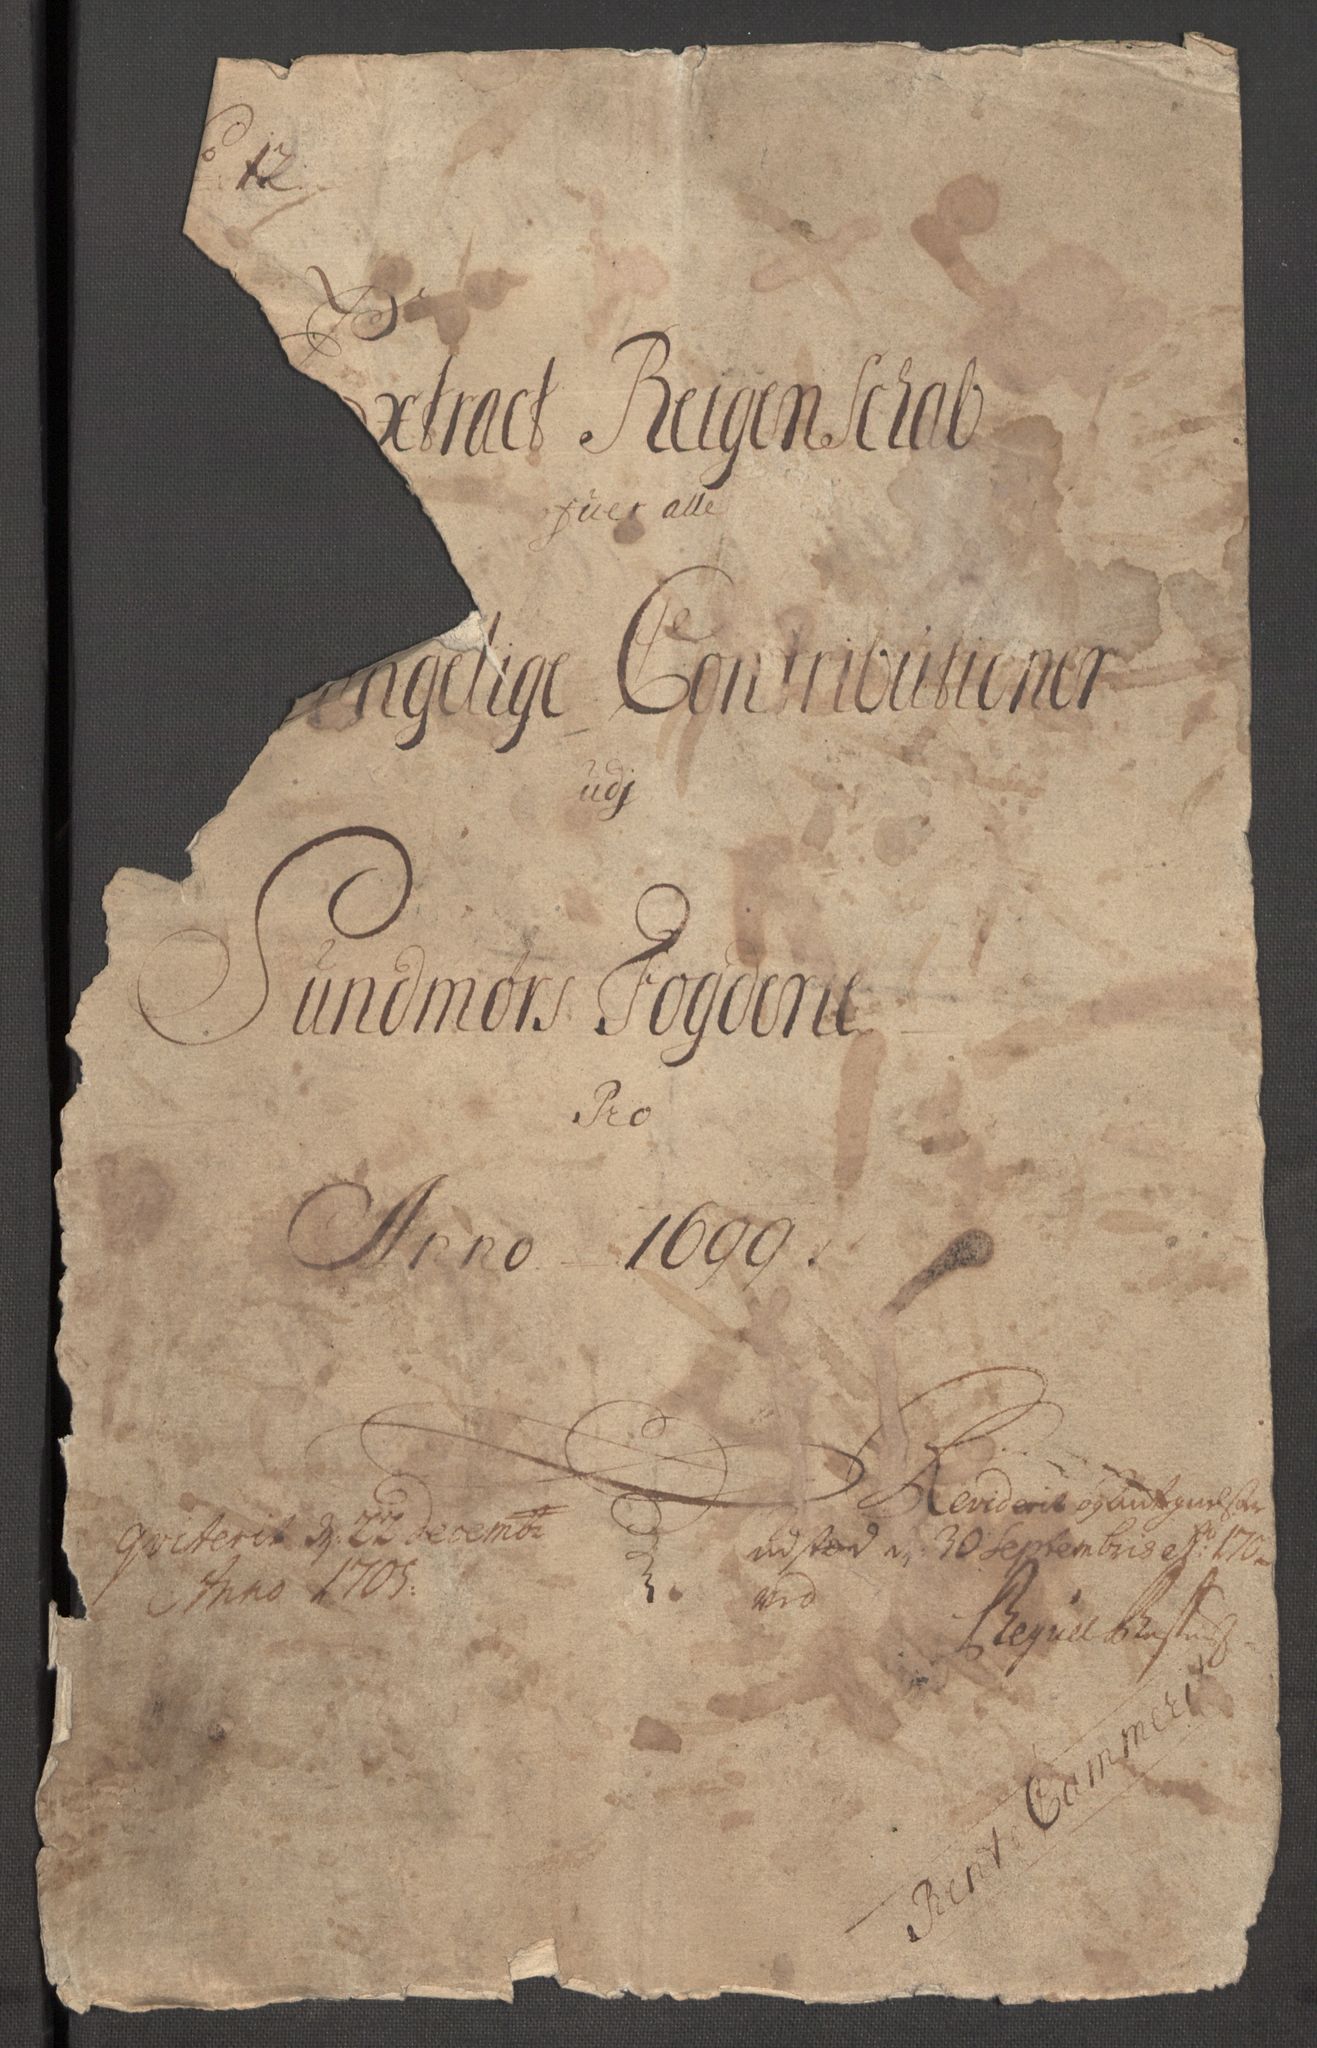 12
xtract Reigenschab
ofuer alle
ngelige Contributioner
udj
Sundmørs Fogderie
Pro
Anno 1699.
qviterit d. 22 decembr
Anno 1705.
3.
Reviderit og antegnelser
udsted d. 30 Septembris Ao. 170
ved
Rente Cammerit